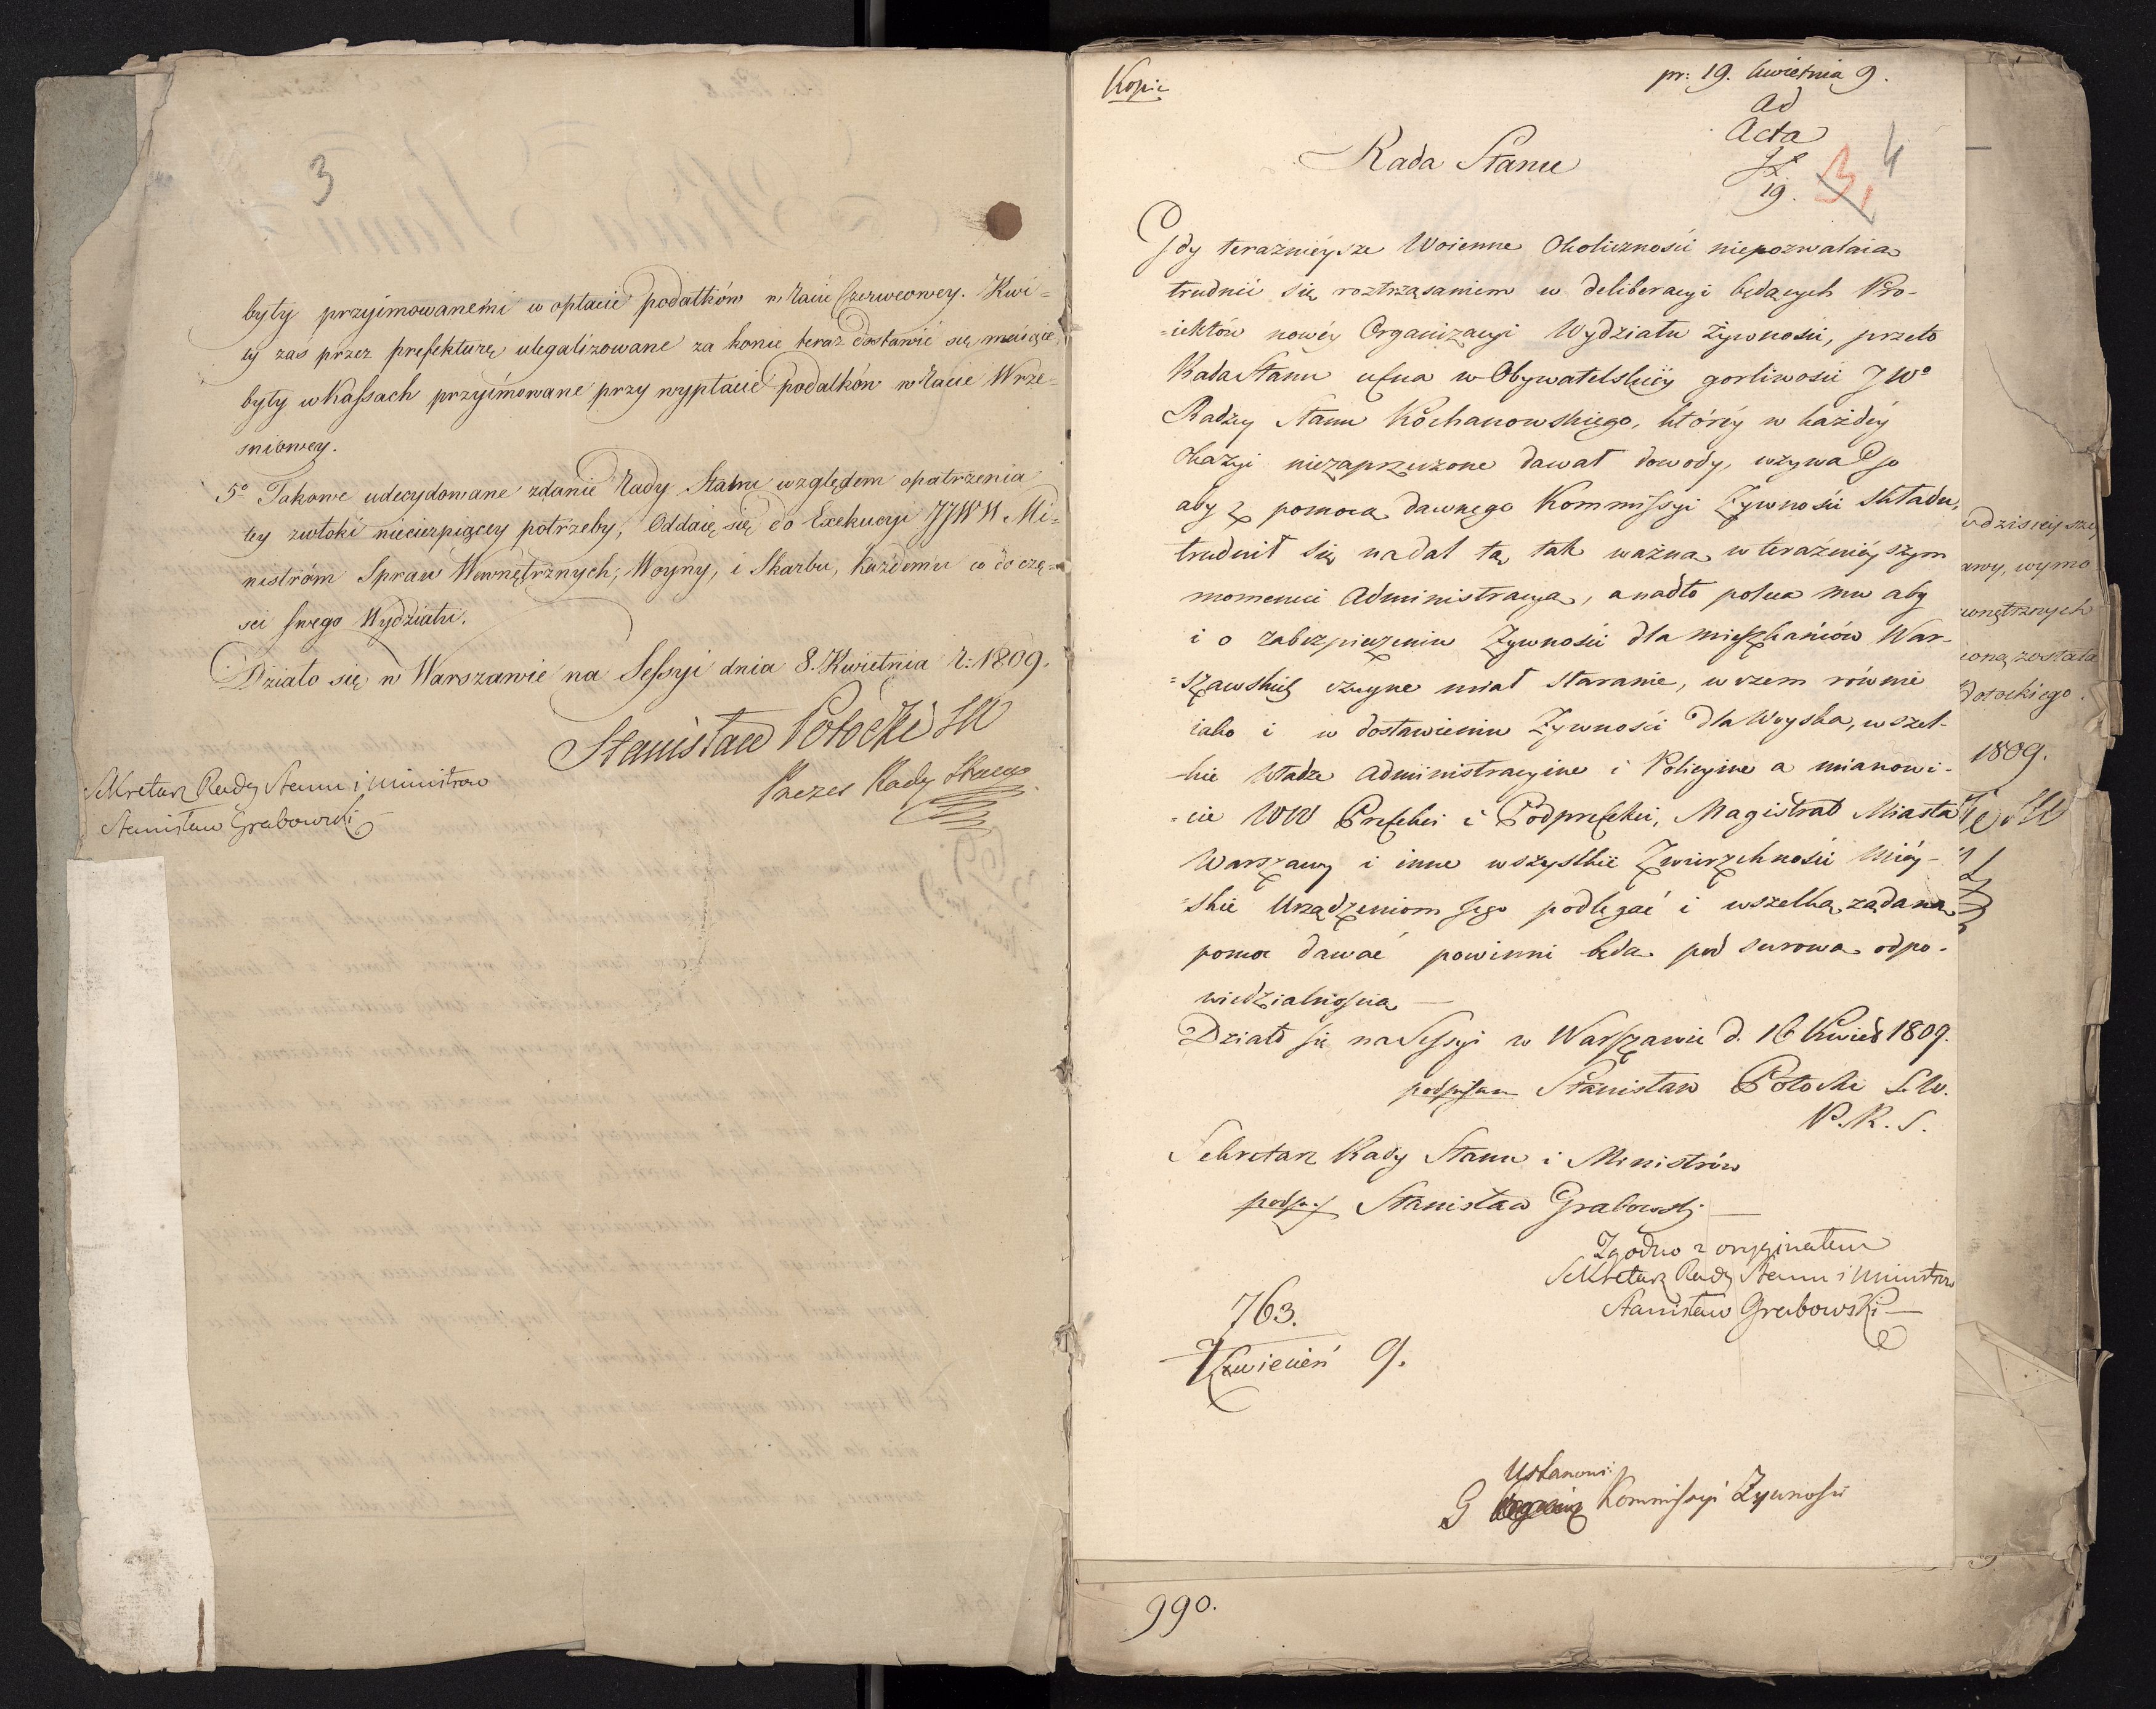 3
były przyimowanemi w opłacie podatków w Racie Czerwcowey. Kwi=
ty zaś przez prefekturę ulegalizowane za konie teraz dostawić się maiące,
były w Kassach przyimowane przy wypłacie podatków w Racie Wrze=
sniowey.
5° Takowe udecydowane zdanie Rady Stanu względem opatrzenia
tey zwłoki niecierpiącey potrzeby, Oddaię się do Exekucyi JJWW Mi=
nistróm Spraw Wewnętrznych, Woyny, i Skarbu, każdemu co do czę=
sci swego Wydziału.
Działo się w Warszawie na Sessyi dnia 8. Kwietnia R: 1809.
Stanisław Potocki SW
Prezes Rady Stanu
Sekretarz Rady Stanu i Ministrow
Stanisław Grabowski
Kopia
pr: 19. kwietnia 9.
Ad
Acta
19.
4
Rada Stanu
Gdy teraznieysze Woienne Okoliczności niepozwalaia
trudnić się roztrząsaniem w deliberacyi będących Pro-
=iektów nowéy Organizacyi Wydziału Żywnosci, przeto
Rada Stanu ufna w Obywatelskiéy gorliwosci JWo
Radzcy Stanu Kochanowskiego, któréy w każdéy
Okazyi niezaprzeczone dawał dowody, wzywa Go
aby z pomocą dawnego Kommissyi Żywności Składu,
trudnił się nadal tą tak ważną w teraźniéyszym
momencie Administracyą, a nadto poleca mu aby
i o zabezpieczeniu Żywności dla mieszkańców War-
=szawskich czynne miał staranie, w czem równie
iako i w dostawieniu Żywności dla Woyska, wszel-
-kie Władze Administracyine i Policyine a mianowi-
=cie WW Prefekci i Podprefekci, Magistrat Miasta
Warszawy i inne wszystkie Zwierzchności Miéy-
=skie Urządzeniom Jego podlegać i wszelką żądaną
pomoc dawać powinni będa pod surową odpo-
wiedzialnością —
Działo się na Sessyi w Warszawie d. 16 Kwiet 1809.
podpisano Stanisław Potocki S.W.
P.R.S.
Sekretarz Rady Stanu i Ministrów
podp: Stanisław Grabowski —
Zgodno z oryginałem
Sekretarz Rady Stanu i Ministrow
Stanisław Grabowski —
763.
Kwiecień 9.
Ustanowi:
G Kommissyi Żywnosci
990.
odzisieysze
awy, wymo
wnętrznych
iona została
Potockiego.
1809.